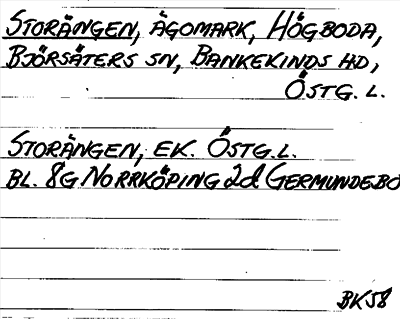 STORÄNGEN, ÄGOMARK, HÖGBODA,
BJÖRSÄTERS SN, BANKEKINDS HD,
ÖSTG. L.
STORÄNGEN, EK. ÖSTG. L.
BL. 8G NORRKÖPING 2d GERMUNDEBO
BK58